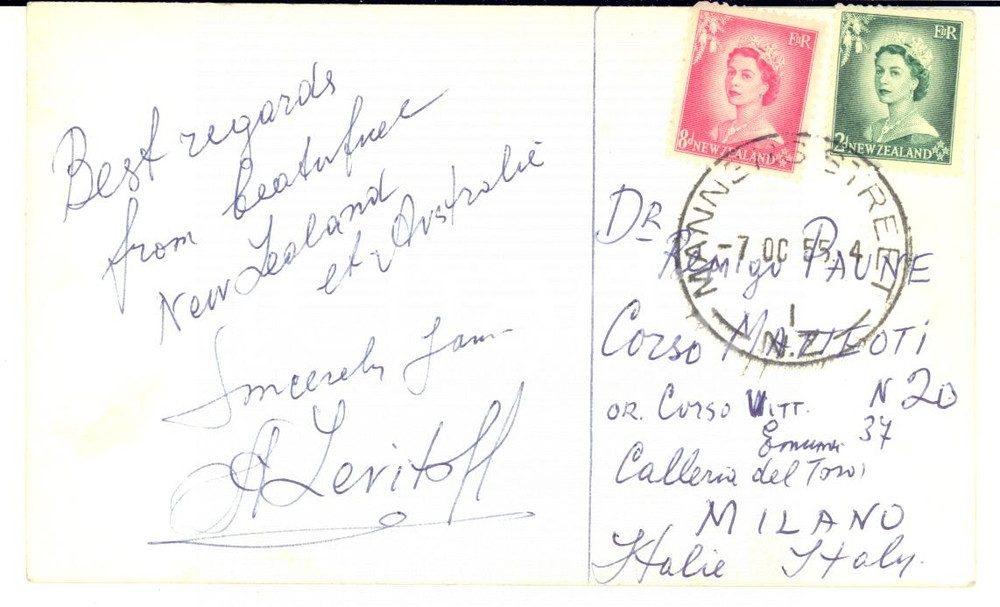 Best regards
from beatufull
New Zealand
et Australie
Sincerely
A Levitoff
EIIR
8d NEW ZEALAND
EIIR
2d NEW ZEALAND
MANNERS STREET
-7 OC 55. 4
1
N.Z.
DR
Remigo PAUNE
Corso MATTEOTI
N 20
OR. Corso VITT.
Emunu 37
Calleria del Toro
MILANO
Italie Italy.